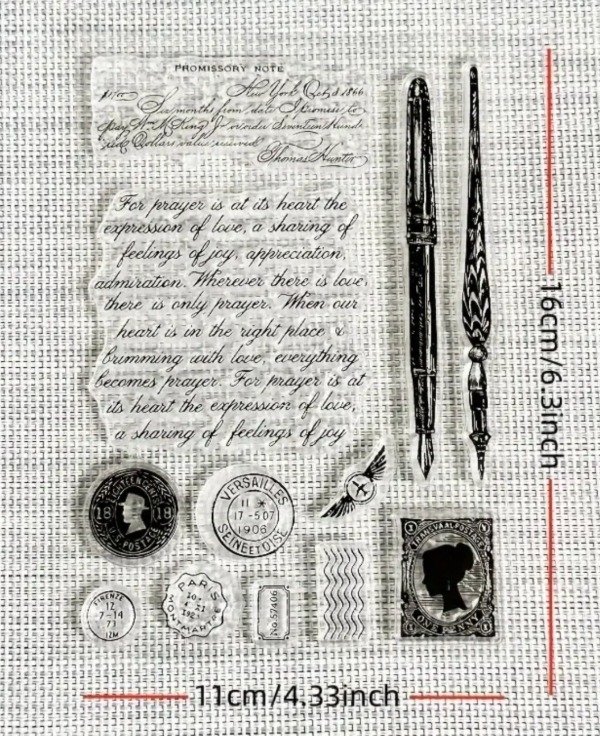 PROMISSORY NOTE
New York Oct 8 1866
Six months from date I promise to
pay Wm McKing Jr or order Seventeen Hund
Dollars value received
Thomas Hunter
For prayer is at its heart the
expression of love, a sharing of
feelings of joy, appreciation,
admiration. Wherever there is love,
there is only prayer. When our
heart is in the right place, &
brimming with love, everything
becomes prayer. For prayer is at
its heart the expression of love,
a sharing of feelings of joy
EIGHTEEN CENTS
18 18
U.S. POSTAGE
VERSAILLES
11
17-507
1906
SEINE ET OISE
FIRENZE
12
7-14
71
12M
PARIS
MONTMARTRE
No.57406
TRANSVAAL POSTAGE
1 1
ONE PENNY
16cm/6.3inch
11cm/4.33inch